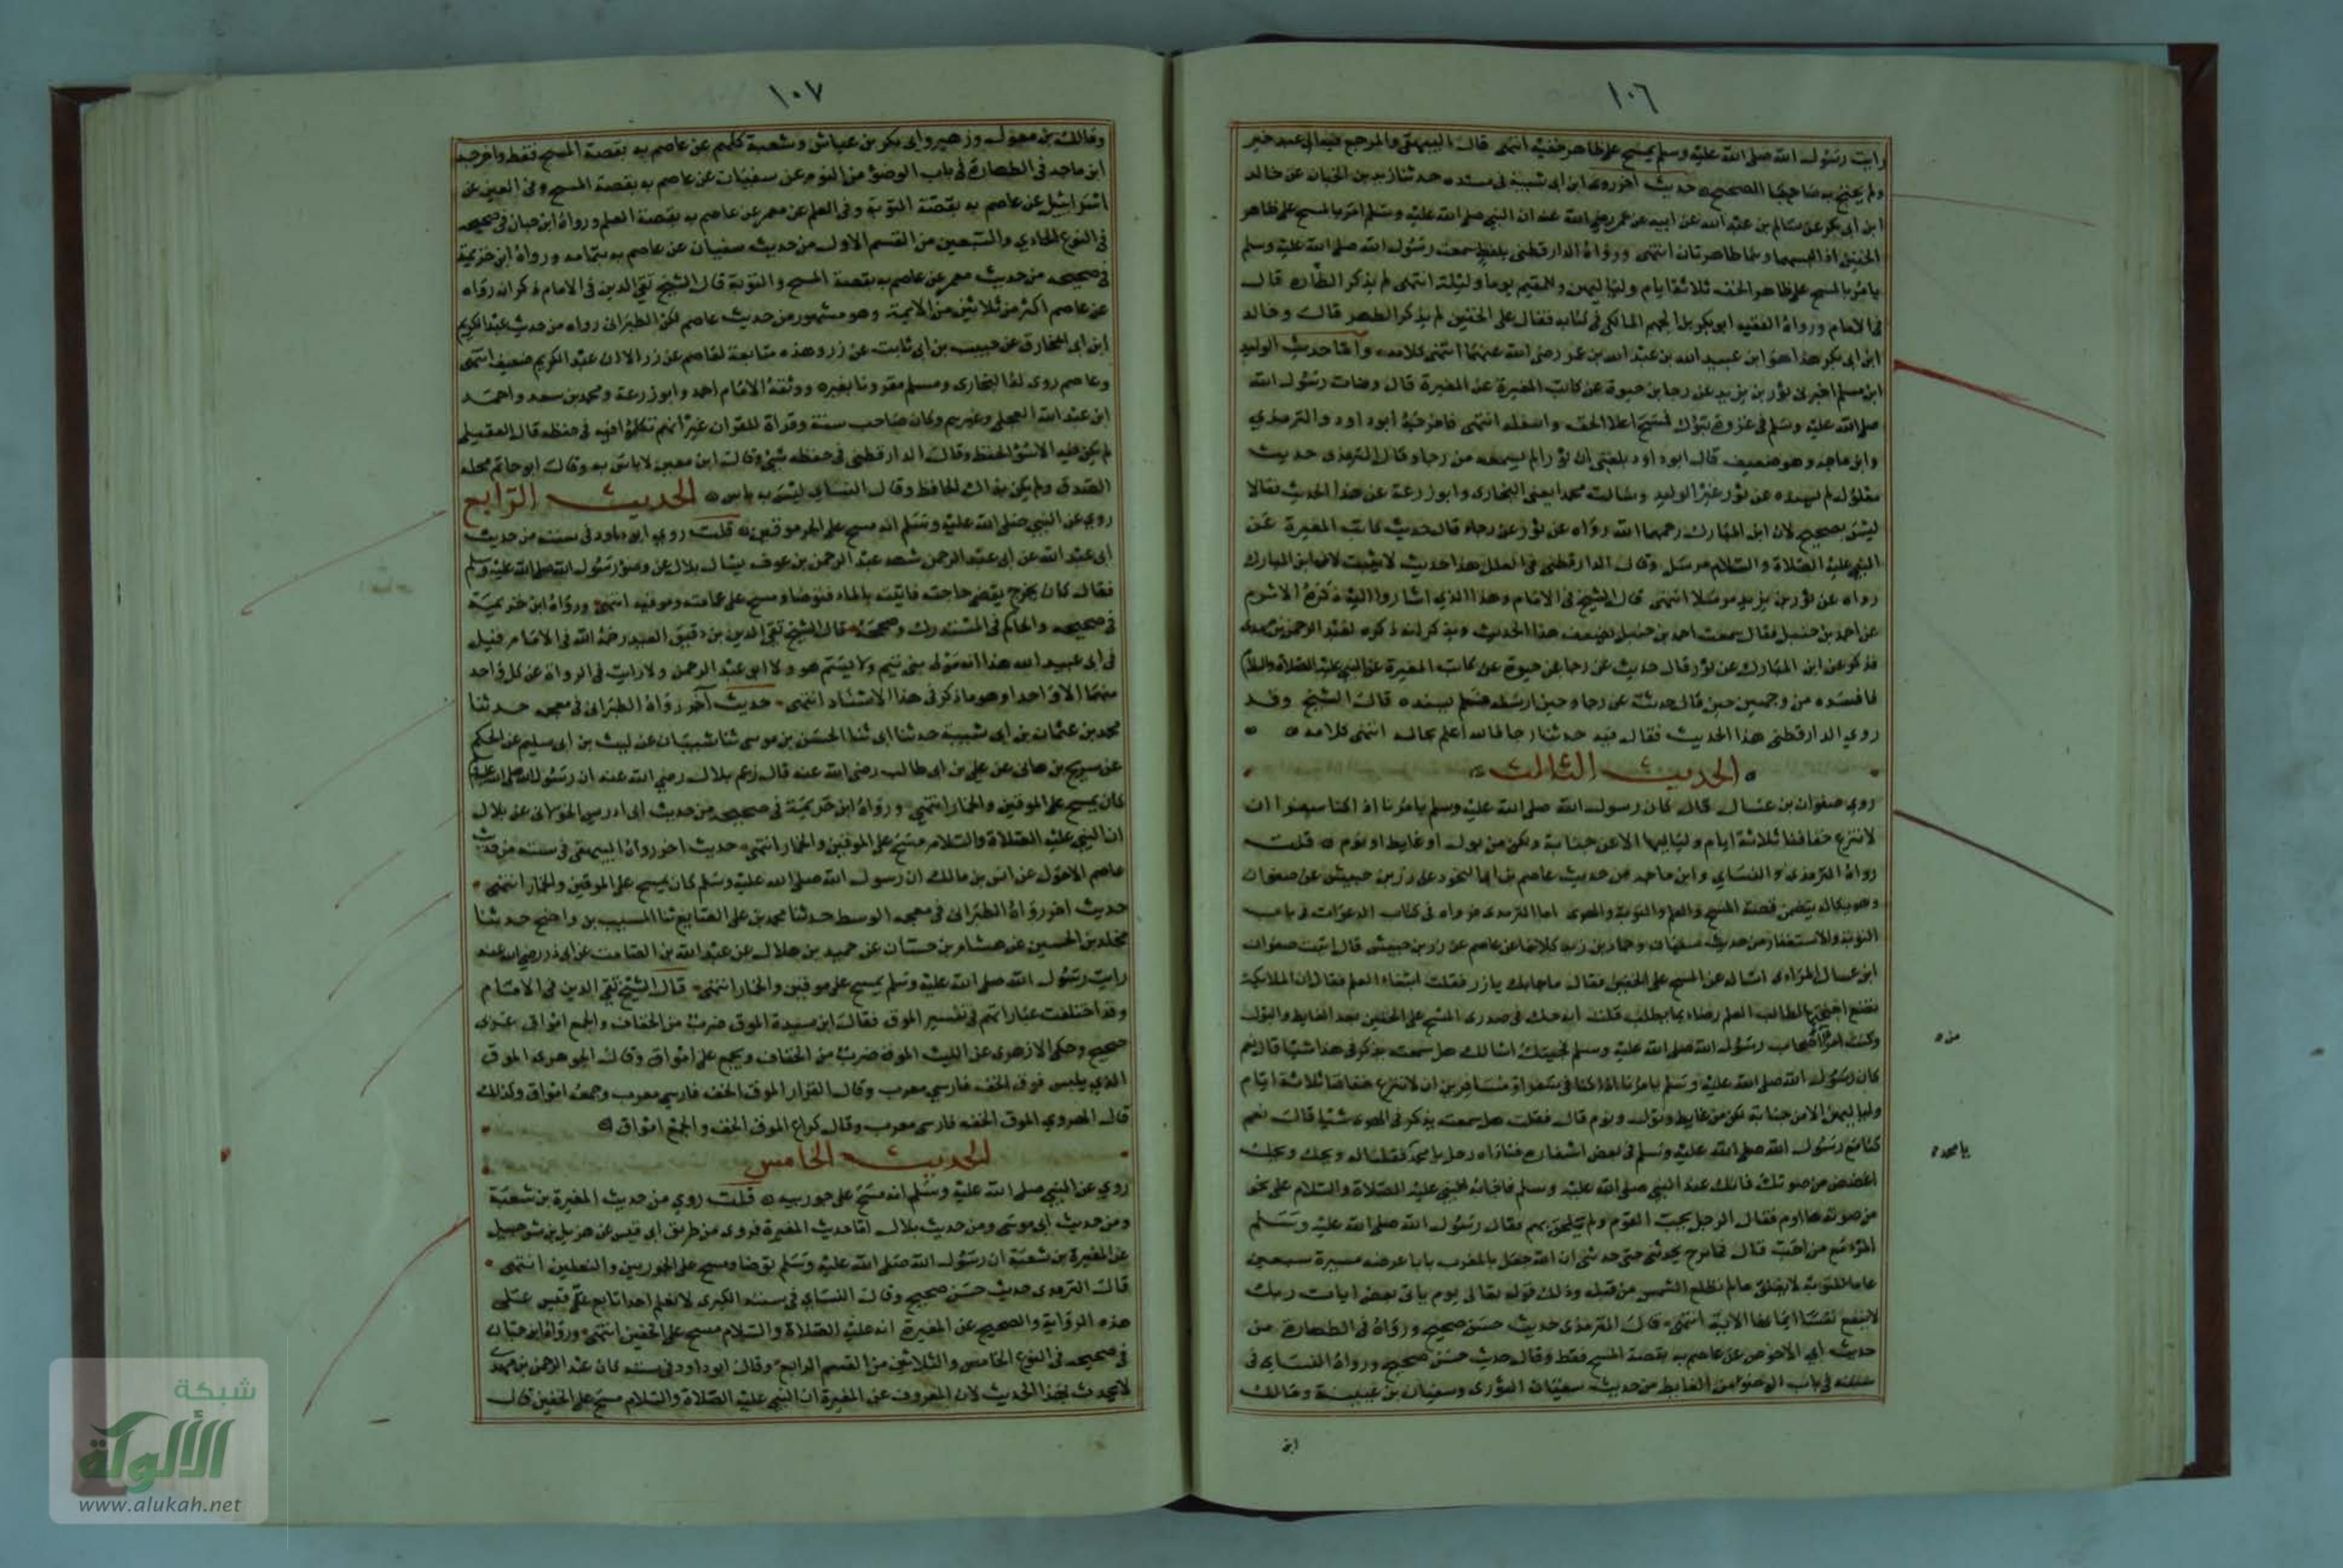 ١٠٦
رايت رسول الله صلى الله عليه وسلم يمسح على ظاهر خفيه انتهى قال البيهقي والمرجع فيه الى عبد خير
ولم يحتج به صاحبا الصحيح حديث اخر روى ابن ابي شيبة في مسنده حدثنا زيد بن الحباب عن خالد
ابن ابي بكر عن سالم بن عبد الله عن ابيه عن عمر رضي الله عنه ان النبي صلى الله عليه وسلم امر بالمسح على ظاهر
الخفين اذا لبسهما وهما طاهرتان انتهى ورواه الدارقطني بلفظ سمعت رسول الله صلى الله عليه وسلم
يامر بالمسح على ظاهر الخف ثلاثة ايام ولياليهن وللمقيم يوما وليلة انتهى لم يذكر الطهارة قال
في الامام ورواه الفقيه ابو بكر بن الجهم المالكي في كتابه فقال على الخفين لم يذكر الظهر قال وخالد
ابن ابي بكر هذا هو ابن عبيد الله بن عبد الله بن عمر رضي الله عنهما انتهى كلامه واما حديث الوليد
ابن مسلم اخبرني ثور بن يزيد عن رجا بن حيوة عن كاتب المغيرة عن المغيرة قال وضات رسول الله
صلى الله عليه وسلم في غزوة تبوك فمسح اعلا الخف واسفله انتهى فاخرجه ابو داود والترمذي
وابن ماجه وهو ضعيف قال ابو داود بلغني ان ثورا لم يسمعه من رجا وقال الترمذي حديث
معلول لم يسنده عن ثور غير الوليد وسالت محمدا يعني البخاري وابو زرعة عن هذا الحديث فقالا
ليس بصحيح لان ابن المبارك رحمهما الله رواه عن ثور عن رجاء قال حديث كاتب المغيرة عن
النبي عليه الصلاة والسلام مرسل وقال الدارقطني في العلل هذا حديث لا يثبت لان ابن المبارك
رواه عن ثور بن يزيد مرسلا انتهى قال الشيخ في الامام وهذا الذي اشاروا اليه ذكره الاثرم
عن احمد بن حنبل فقال سمعت احمد بن حنبل يضعف هذا الحديث ويذكر انه ذكره لعبد الرحمن بن مهدي
فذكر عن ابن المبارك عن ثور قال حديث عن رجا عن حيوة عن كاتب المغيرة عن النبي عليه الصلاة والسلام
فافسده من وجهين حين قال حدثت عن رجا وحين ارسله فلم يسنده قال الشيخ وقد
روى الدارقطني هذا الحديث فقال فيه حدثنا رجا فالله اعلم بحاله انتهى كلامه
الحديث الثالث
روى صفوان بن عسال قال كان رسول الله صلى الله عليه وسلم يامرنا اذا كنا سفرا ان
لا ننزع خفافنا ثلاثة ايام ولياليها الا عن جنابة ولكن من بول او غايط او نوم قلت
رواه الترمذي والنسايي وابن ماجه من حديث عاصم بن ابي النجود عن زر بن حبيش عن صفوان
وهو بكماله يتضمن قصة المسح والعلم والتوبة والهوى اما الترمذي فرواه في كتاب الدعوات في باب
التوبة والاستغفار من حديث سفيان وحماد بن زيد كلاهما عن عاصم عن زر بن حبيش قال اتيت صفوان
ابن عسال المرادي اساله عن المسح على الخفين فقال ما جابك يا زر فقلت ابتغاء العلم فقال ان الملايكة
تضع اجنحتها لطالب العلم رضاء بما يطلب قلت انه حك في صدري المسح على الخفين بعد الغايط والبول
وكنت امرأ اصحاب رسول الله صلى الله عليه وسلم فجيتك اسالك هل سمعته يذكر في هذا شيا قال نعم
من
كان رسول الله صلى الله عليه وسلم يامرنا اذا كنا في سفر او مسافرين ان لا ننزع خفافنا ثلاثة ايام
ولياليهن الا من جنابة لكن من غايط وبول ونوم قال فقلت هل سمعته يذكر في الهوى شيا قال نعم
كنا مع رسول الله صلى الله عليه وسلم في بعض اسفاره فناداه رجل يا محمد فقلنا له ويحك ويحك
يا محمد
اغضض من صوتك فانك عند النبي صلى الله عليه وسلم فاجابه النبي عليه الصلاة والسلام على نحو
من صوته هااوم فقال الرجل يحب القوم ولم يلحق بهم فقال رسول الله صلى الله عليه وسلم
المرء مع من احب قال فما برح يحدثني حتى حدثني ان الله جعل بالمغرب بابا عرضه مسيرة سبعين
عاما للتوبة لا يغلق ما لم تطلع الشمس من قبله وذلك قوله تعالى يوم ياتي بعض ايات ربك
لا ينفع نفسا ايمانها الاية انتهى قال الترمذي حديث حسن صحيح ورواه في الطهارة من
حديث ابي الاحوص عن عاصم به بقصة المسح فقط وقال حديث حسن صحيح ورواه النسايي في
سننه في باب الوضو من الغايط من حديث سفيان الثوري وسفيان بن عيينة ومالك
ابن
١٠٧
ومالك بن مغول وزهير وابي بكر بن عياش وشعبة كلهم عن عاصم به بقصة المسح فقط واخرجه
ابن ماجه في الطهارة في باب الوضو من النوم عن سفيان عن عاصم به بقصة المسح وفي الفتن عن
اسراييل عن عاصم به بقصة التوبة وفي العلم عن معمر عن عاصم به بقصة العلم ورواه ابن حبان في صحيحه
في النوع الحادي والسبعين من القسم الاول من حديث سفيان عن عاصم به بتمامه ورواه ابن خزيمة
في صحيحه من حديث معمر عن عاصم به بقصة المسح والتوبة قال الشيخ تقي الدين في الامام ذكر انه رواه
عن عاصم اكثر من ثلاثين من الايمة وهو مشهور من حديث عاصم لكن الطبراني رواه من حديث عبد الكريم
ابن ابي المخارق عن حبيب بن ابي ثابت عن زر وهذه متابعة لعاصم عن زر الا ان عبد الكريم ضعيف انتهى
وعاصم روى له البخاري ومسلم مقرونا بغيره ووثقه الامام احمد وابو زرعة ومحمد بن سعد واحمد
ابن عبد الله العجلي وغيرهم وكان صاحب سنة وقراة للقران غير انهم تكلموا فيه في حفظه قال العقيلي
لم يكن فيه الا سوء الحفظ وقال الدارقطني في حفظه شي وقال ابن معين لا باس به وقال ابو حاتم محله
الصدق ولم يكن بذاك الحافظ وقال النسايي ليس به باس الحديث الرابع
روي عن النبي صلى الله عليه وسلم انه مسح على الجرموقين قلت روى ابو داود في سننه من حديث
ابي عبد الله عن ابي عبد الرحمن شهد عبد الرحمن بن عوف يسال بلال عن وضو رسول الله صلى الله عليه وسلم
فقال كان يخرج يقضي حاجته فاتيه بالماء فتوضا ومسح على عمامته وموقيه انتهى ورواه ابن خزيمة
في صحيحه والحاكم في المستدرك وصححه قال الشيخ تقي الدين بن دقيق العيد رحمه الله في الامام قيل
في ابي عبيد الله هذا انه مولى بني تيم ولا يسم هو ولا ابو عبد الرحمن ولا رايت في الرواة عن كل واحد
منهما الا واحدا وهو ما ذكر في هذا الاسناد انتهى حديث آخر رواه الطبراني في معجمه حدثنا
محمد بن عثمان بن ابي شيبة حدثنا ابي ثنا الحسن بن موسى ثنا شيبان عن ليث بن ابي سليم عن الحكم
عن سريح بن هانى عن علي بن ابي طالب رضي الله عنه قال زعم بلال رضي الله عنه ان رسول الله صلى الله عليه
كان يمسح على الموقين والخمار انتهى ورواه ابن خزيمة في صحيحه من حديث ابي ادريس الخولاني عن بلال
ان النبي عليه الصلاة والسلام مسح على الموقين والخمار انتهى حديث اخر رواه البيهقي في سننه من حديث
عاصم الاحول عن انس بن مالك ان رسول الله صلى الله عليه وسلم كان يمسح على الموقين والخمار انتهى
حديث اخر رواه الطبراني في معجمه الوسط حدثنا محمد بن علي الصايغ ثنا المسيب بن واضح حدثنا
مخلد بن الحسين عن هشام بن حسان عن حميد بن هلال عن عبد الله بن الصامت عن ابي ذر رضي الله عنه
رايت رسول الله صلى الله عليه وسلم يمسح على موقين والخمار انتهى قال الشيخ تقي الدين في الامام
وقد اختلفت عباراتهم في تفسير الموق فقال ابن سيدة الموق ضرب من الخفاف والجمع امواق عربي
صحيح وحكى الازهري عن الليث الموق ضرب من الخفاف ويجمع على امواق وقال الجوهري الموق
الذي يلبس فوق الخف فارسي معرب وقال الفزار الموق الخف فارسي معرب وجمعه امواق وكذلك
قال الهروي الموق الخف فارسي معرب وقال كراع الموق الخف والجمع امواق
الحديث الخامس
روي عن النبي صلى الله عليه وسلم انه مسح على جوربيه قلت روي من حديث المغيرة بن شعبة
ومن حديث ابي موسى ومن حديث بلال اما حديث المغيرة فروى من طريق ابي قيس عن هزيل بن شرحبيل
عن المغيرة بن شعبة ان رسول الله صلى الله عليه وسلم توضا ومسح على الجوربين والنعلين انتهى
قال الترمذي حديث حسن صحيح وقال النسايي في سننه الكبرى لا نعلم احدا تابع ابا قيس على
هذه الرواية والصحيح عن المغيرة انه عليه الصلاة والسلام مسح على الخفين انتهى ورواه ابن حبان
في صحيحه في النوع الخامس والثلاثين من القسم الرابع وقال ابو داود في سننه كان عبد الرحمن بن مهدي
لا يحدث بهذا الحديث لان المعروف عن المغيرة ان النبي عليه الصلاة والسلام مسح على الخفين قال
شبكة
الألوكة
www.alukah.net